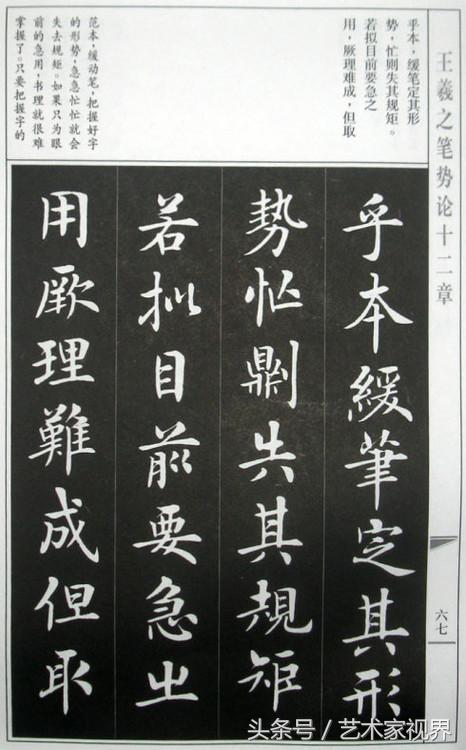 王羲之笔势论十二章
六七
乎本,缓笔定其形
势,忙则失其规矩。
若拟目前要急之
用,厥理难成,但取
范本,缓动笔,把握好字
的形势,急急忙忙就会
失去规矩。如果只为眼
前的急用,书理就很难
掌握了。只要把握字的
乎本緩筆定其形
勢忙則失其規矩
若拟目前要急之
用厥理難成但取
头条号/艺术家视界